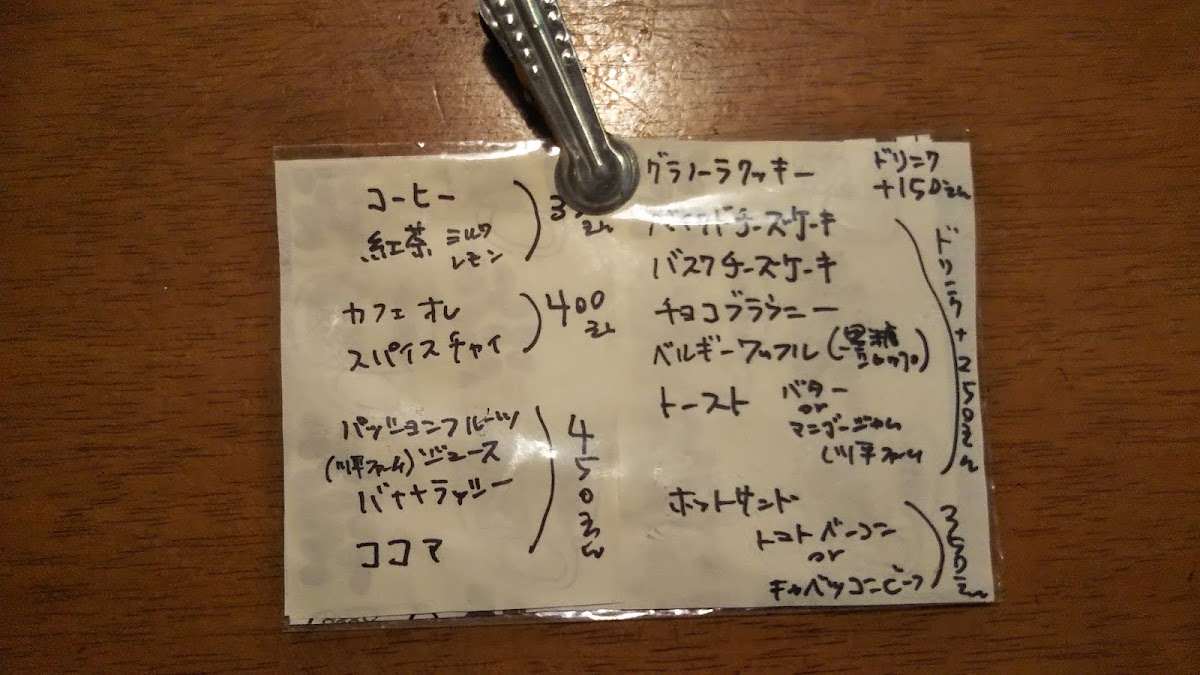 コーヒー
紅茶 ミルク
レモン
えん
カフェオレ
スパイスチャイ
400
えん
パッションフルーツ
(川平ファーム)ジュース
バナナラッシー
ココア
450えん
グラノーラクッキー
ドリンク
+150えん
ベイクドチーズケーキ
バスクチーズケーキ
チョコブラウニー
ベルギーワッフル(黒糖
シロップ)
トースト バター
or
マンゴージャム
川平ファーム
ドリンク+250えん
ホットサンド
トマトベーコン
or
キャベツコンビーフ
350えん